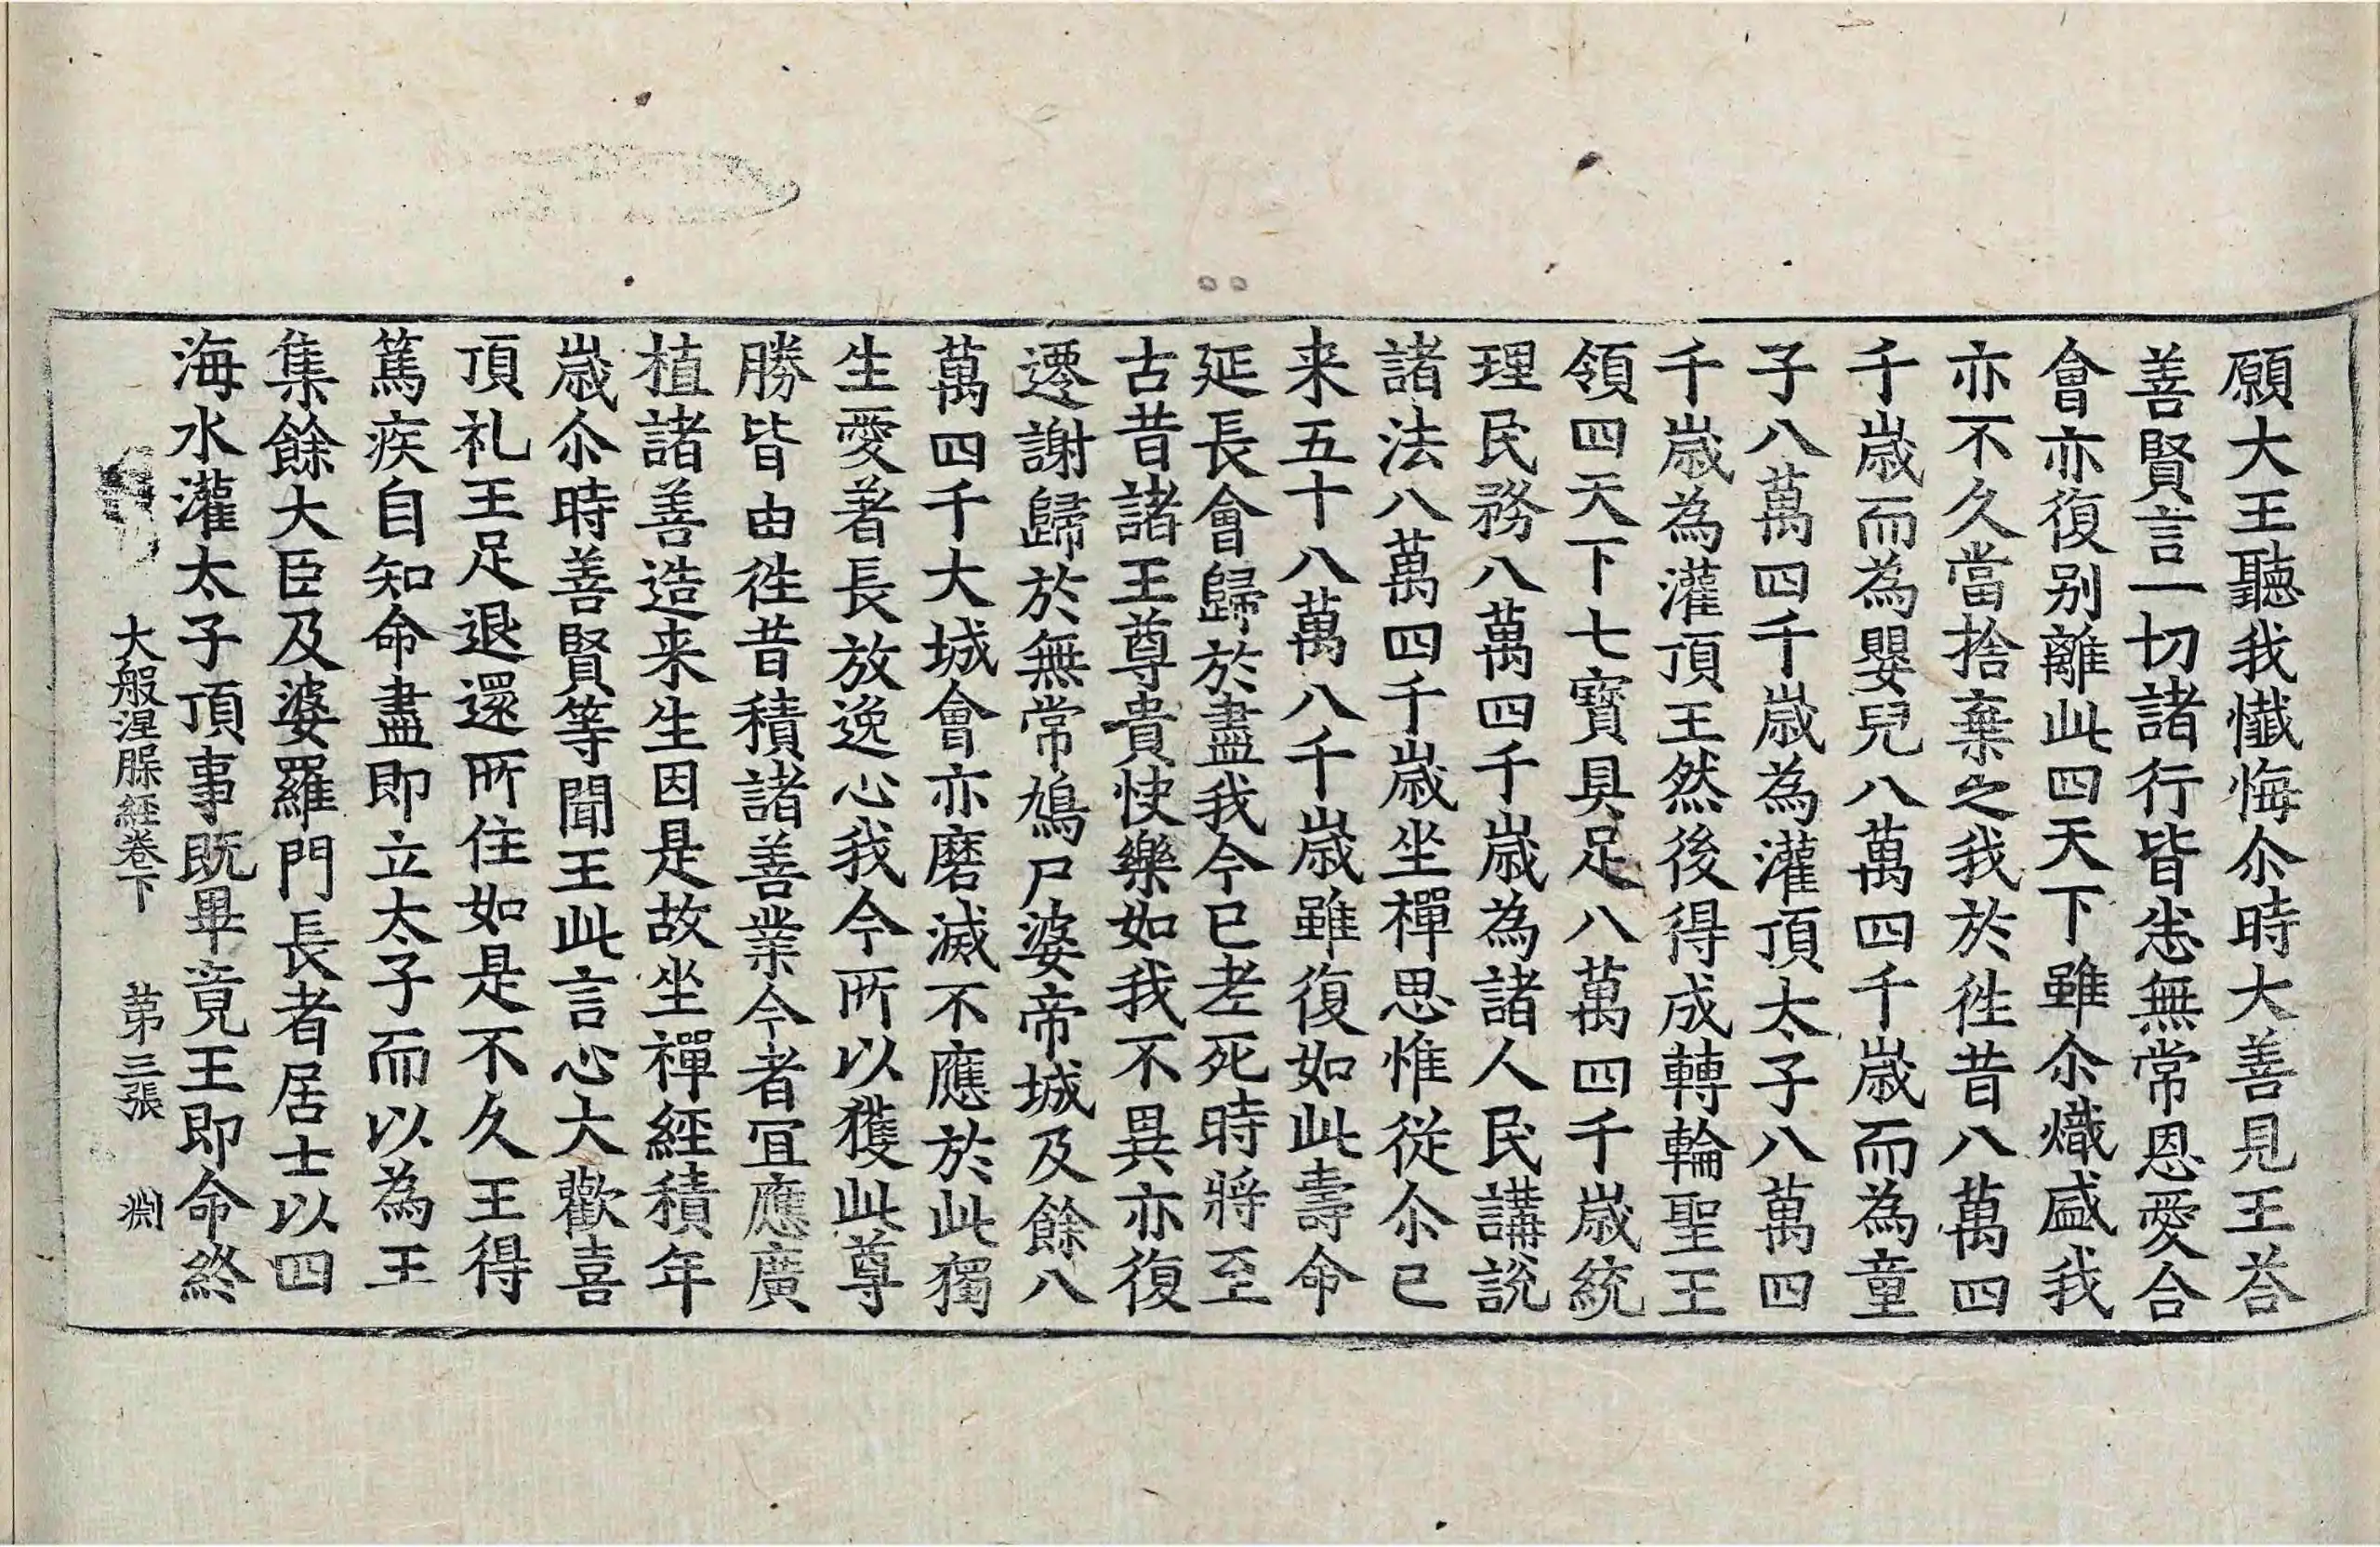 願大王聽我懺悔尒時大善見王荅
善賢言一切諸行皆悉無常恩愛合
會亦復别離此四天下雖尒熾盛我
亦不久當捨棄之我於徃昔八萬四
千歳而為嬰兒八萬四千歳而為童
子八萬四千歳為灌頂太子八萬四
千歳為灌頂王然後得成轉輪聖王
領四天下七寳具足八萬四千歳統
理民務八萬四千歳為諸人民講説
諸法八萬四千歳坐禪思惟從尒已
来五十八萬八千歳雖復如此壽命
延長會歸於盡我今已老死時將至
古昔諸王尊貴快樂如我不異亦復
遷謝歸於無常鳩尸婆帝城及餘八
萬四千大城會亦磨滅不應於此獨
生愛著長放逸心我今所以獲此尊
勝皆由徃昔積諸善業今者冝應廣
植諸善造来生因是故坐禪經積年
歳尒時善賢等聞王此言心大歡喜
頂礼王足退還所住如是不久王得
篤疾自知命盡即立太子而以為王
集餘大臣及婆羅門長者居士以四
海水灌太子頂事既畢竟王即命終
大般涅槃經卷下 第三張 淵